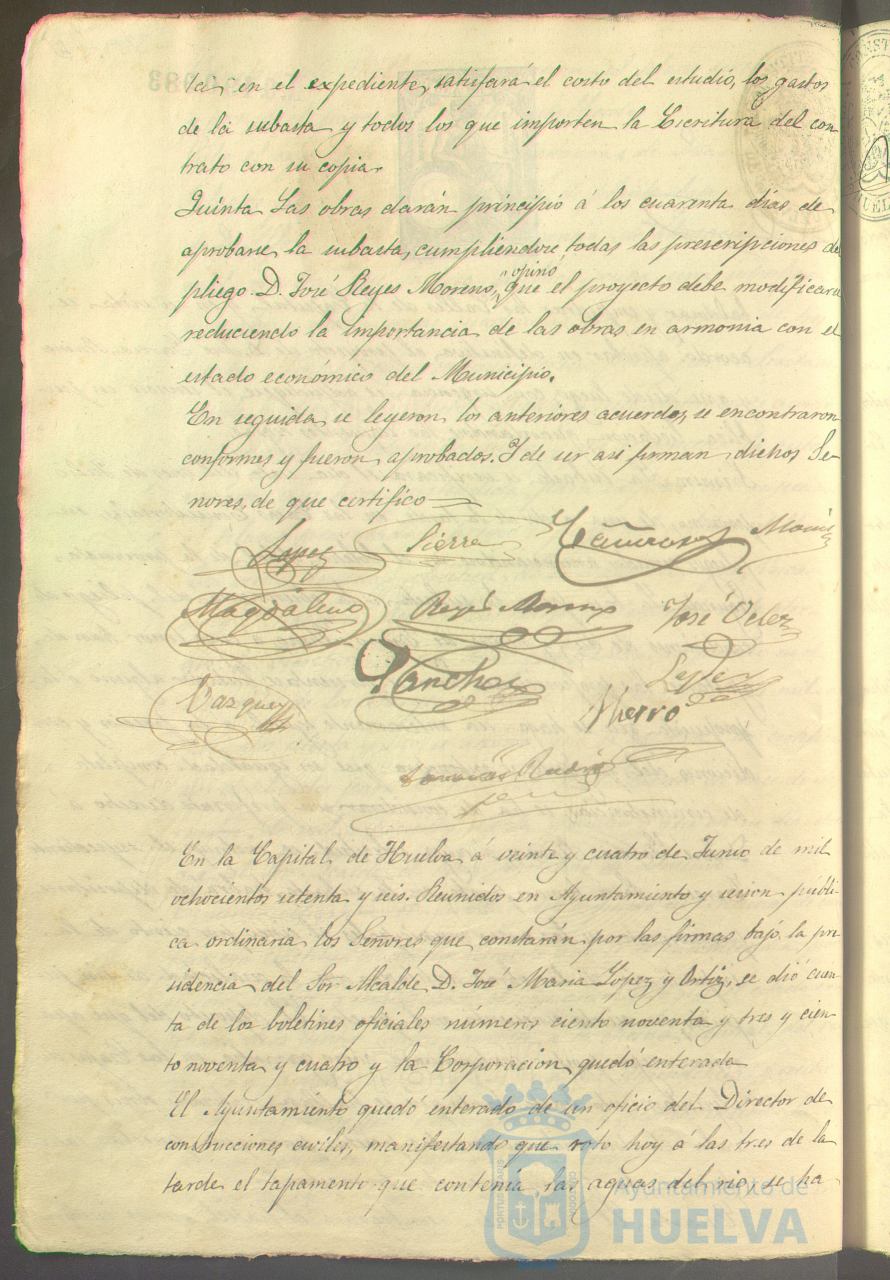 ta en el expediente, satisfará el costo del estudio, los gastos
de la subasta y todos los que importen la Escritura del con
trato con su copia.
Quinta Las obras darán principio á los cuarenta dias de
aprobarse la subasta, cumpliendose todas las prescripciones del
pliego. D. José Reyes Moreno, opinó que el proyecto debe modificarse
reduciendo la importancia de las obras en armonia con el
estado económico del Municipio.
En seguida se leyeron los anteriores acuerdos, se encontraron
conformes y fueron aprobados. Y de ser asi firman dichos Se-
ñores, de que certifico
Lopez Sierra
Magdaleno Reyes Moreno José Velez
Vazquez Sanchez
Hierro
En la Capital de Huelva á veinte y cuatro de Junio de mil
ochocientos setenta y seis. Reunidos en Ayuntamiento y sesion públi-
ca ordinaria los Señores que constarán por las firmas bajo la pre
sidencia del Sor Alcalde D. José Maria Lopez y Ortiz, se dió cuen
ta de los boletines oficiales números ciento noventa y tres y cien
to noventa y cuatro y la Corporacion quedó enterada
El Ayuntamiento quedó enterado de un oficio del Director de
construcciones civiles, manifestando que roto hoy á las tres de la
tarde el tapamento que contenia las aguas del rio, se ha
Ayuntamiento de
HUELVA